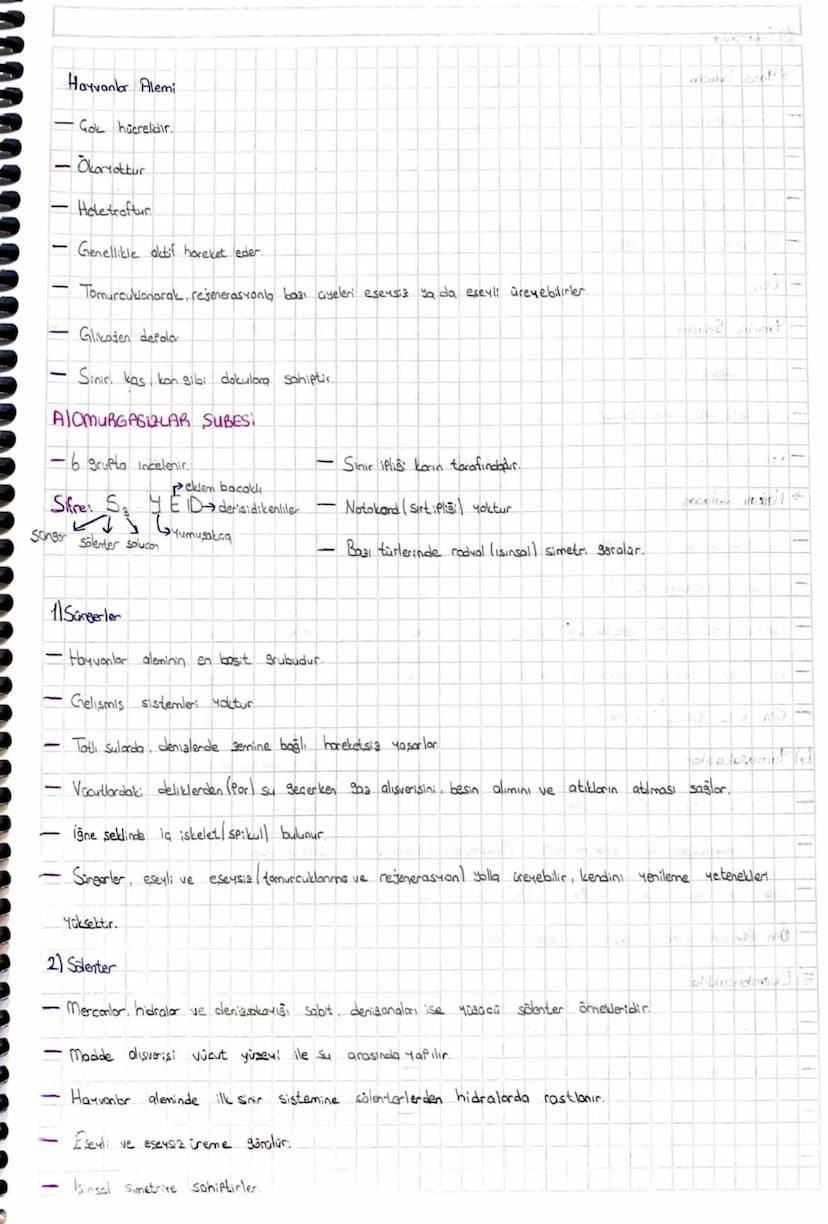 Hayvanlar Alemi
— Çok hücrelidir.
— Ökaryottur
— Heterotroftur
— Genellikle aktif hareket eder.
— Tomurcuklanarak, rejenerasyonla bazı üyeleri eşeysiz ya da eşeyli üreyebilirler
— Glikojen depolar
— Sinir, kas, kan gibi dokulara sahiptir.
A) OMURGASIZLAR ŞUBESİ
— 6 grupta incelenir.
Şifre: S₃ Y E D → derisidikenliler
eklem bacaklı
sünger sölenter solucan yumuşakça
— Sinir ipliği karın tarafındadır.
— Notokord (sırt ipliği) yoktur
— Bazı türlerinde radyal (ışınsal) simetri görülür.
1) Süngerler
— Hayvanlar aleminin en basit grubudur.
— Gelişmiş sistemleri yoktur
— Tatlı sularda, denizlerde zemine bağlı hareketsiz yaşarlar
— Vücutlardaki deliklerden (Por) su geçerken gaz alışverişini, besin alımını ve atıkların atılması sağlar.
— iğne şeklinde iç iskelet (spikül) bulunur.
— Süngerler, eşeyli ve eşeysiz (tomurcuklanma ve rejenerasyon) yolla üreyebilir, kendini yenileme yetenekleri
yüksektir.
2) Sölenter
— Mercanlar, hidralar ve denizşakayığı sabit, denizanaları ise yüzücü sölenter örnekleridir.
— Madde alışverişi vücut yüzeyi ile su arasında yapılır.
— Hayvanlar aleminde ilk sinir sistemine sölenterlerden hidralarda rastlanır.
— Eşeyli ve eşeysiz üreme görülür.
— Işınsal simetriye sahiptirler.